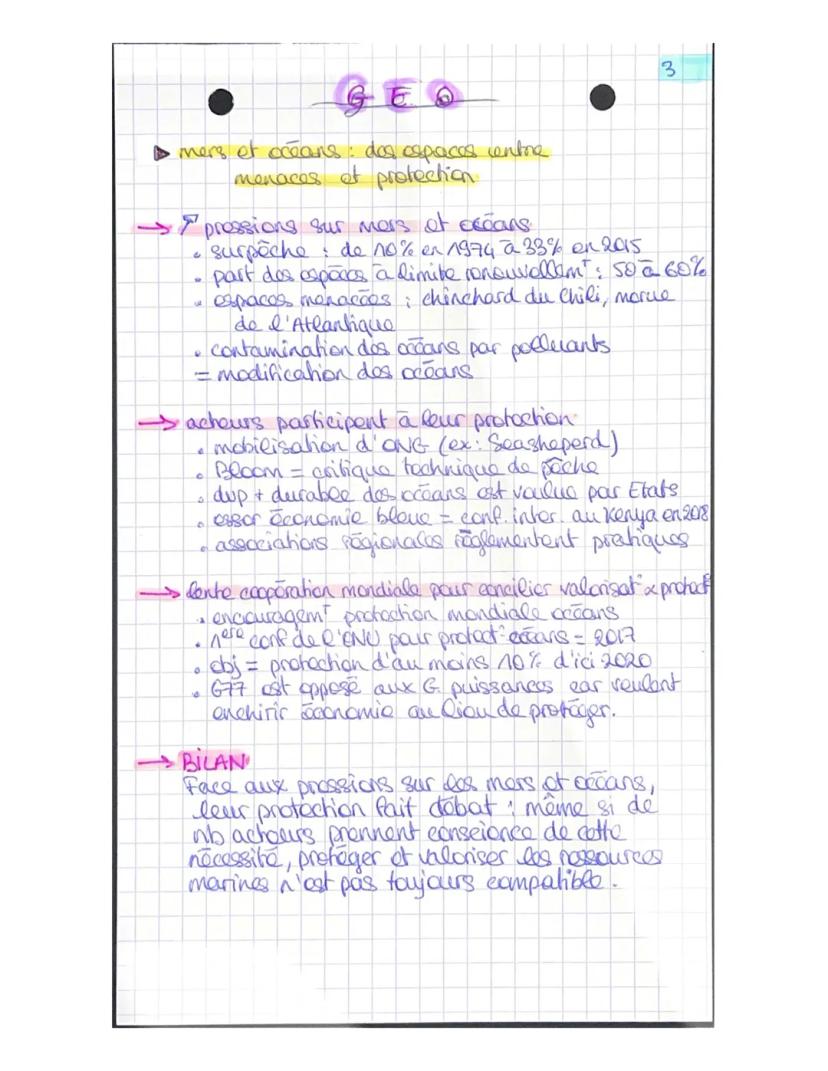 3
GEO
▶ mers et océans : des espaces entre
menaces et protection
→ ↗ pressions sur mers et océans
• surpêche : de 10% en 1974 à 33% en 2015
• part des espèces à limite renouvellemT : 50 à 60%
• espaces menacées : chinchard du Chili, morue
de l'Atlantique
• contamination des océans par polluants
= modification des océans
→ acteurs participent à leur protection
• mobilisation d'ONG (ex: Seasheperd)
• Bloom = critique technique de pêche
• dvp + durable des océans est voulue par Etats
• essor économie bleue = conf. inter. au Kenya en 2018
• associations régionales règlementent pratiques
→ lente coopération mondiale pour concilier valorisat° & protect°
• encouragemT protection mondiale océans
• 1ère conf de l'ONU pour protect° océans = 2017
• obj = protection d'au moins 10% d'ici 2020
• G77 est opposé aux G. puissances car veulent
enchirir économie au lieu de protéger.
→ BILAN
Face aux pressions sur les mers et océans,
leur protection fait débat : même si de
nb acteurs prennent conscience de cette
nécessité, protéger et valoriser les ressources
marines n'est pas toujours compatible.